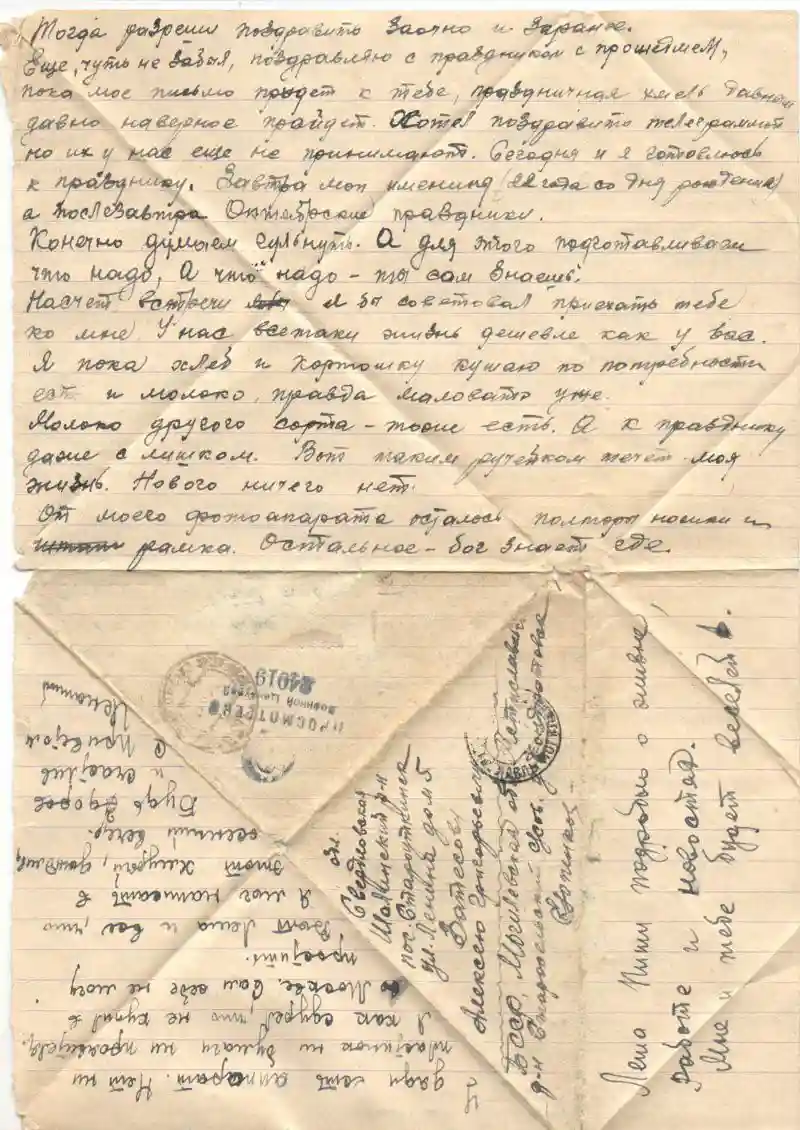 Тогда разреши поздравить заочно и заранее.
Еще, чуть не забыл, поздравляю с праздником с прошедшем,
пока мое письмо придет к тебе, праздничная хмель давным
давно наверное пройдет. Хотел поздравить телеграммой
но их у нас еще не принимают. Сегодня и я готовлюсь
к празднику. Завтра мои именины (22 года со дня рождения)
а послезавтра Октябрьские праздники.
Конечно думаем гульнуть. А для этого подготавливаем
что надо, А что надо – ты сам знаешь.
Насчет встречи я бы советовал приехать тебе
ко мне. У нас всетаки жизнь дешевле как у вас.
Я пока хлеб и картошку кушаю по потребности
есть и молоко, правда маловато уже.
Молоко другого сорта – тоже есть. А к празднику
даже с лишком. Вот таким ручейком течет моя
жизнь. Нового ничего нет.
От моего фотоапарата осталось полторы ножки и
рамка. Остальное – бог знает где.
дади хоть аппарат. Нет ни
пластинок ни бумаги ни проявителя,
Я как сдурел, что не купил в
Москве. Сам себе не могу
простить.
Вот Леша и все, что
Я мог написать в
этот хмурый, дождлив.
осенний вечер.
Будь здоров
и счастлив
С Приветом
ПРОСМОТРЕНО
Военной Цензурой
24019
Свердловская обл.
Шалинский р-н
пос. Староуткинск
ул. Ленина дом 5
Затесову
Алексею Григорьевичу
БССР, Могилевская обл. Мстиславльский
р-н
Леша Пиши подробно о жизни,
работе и новостях.
Мне и тебе будет веселей.